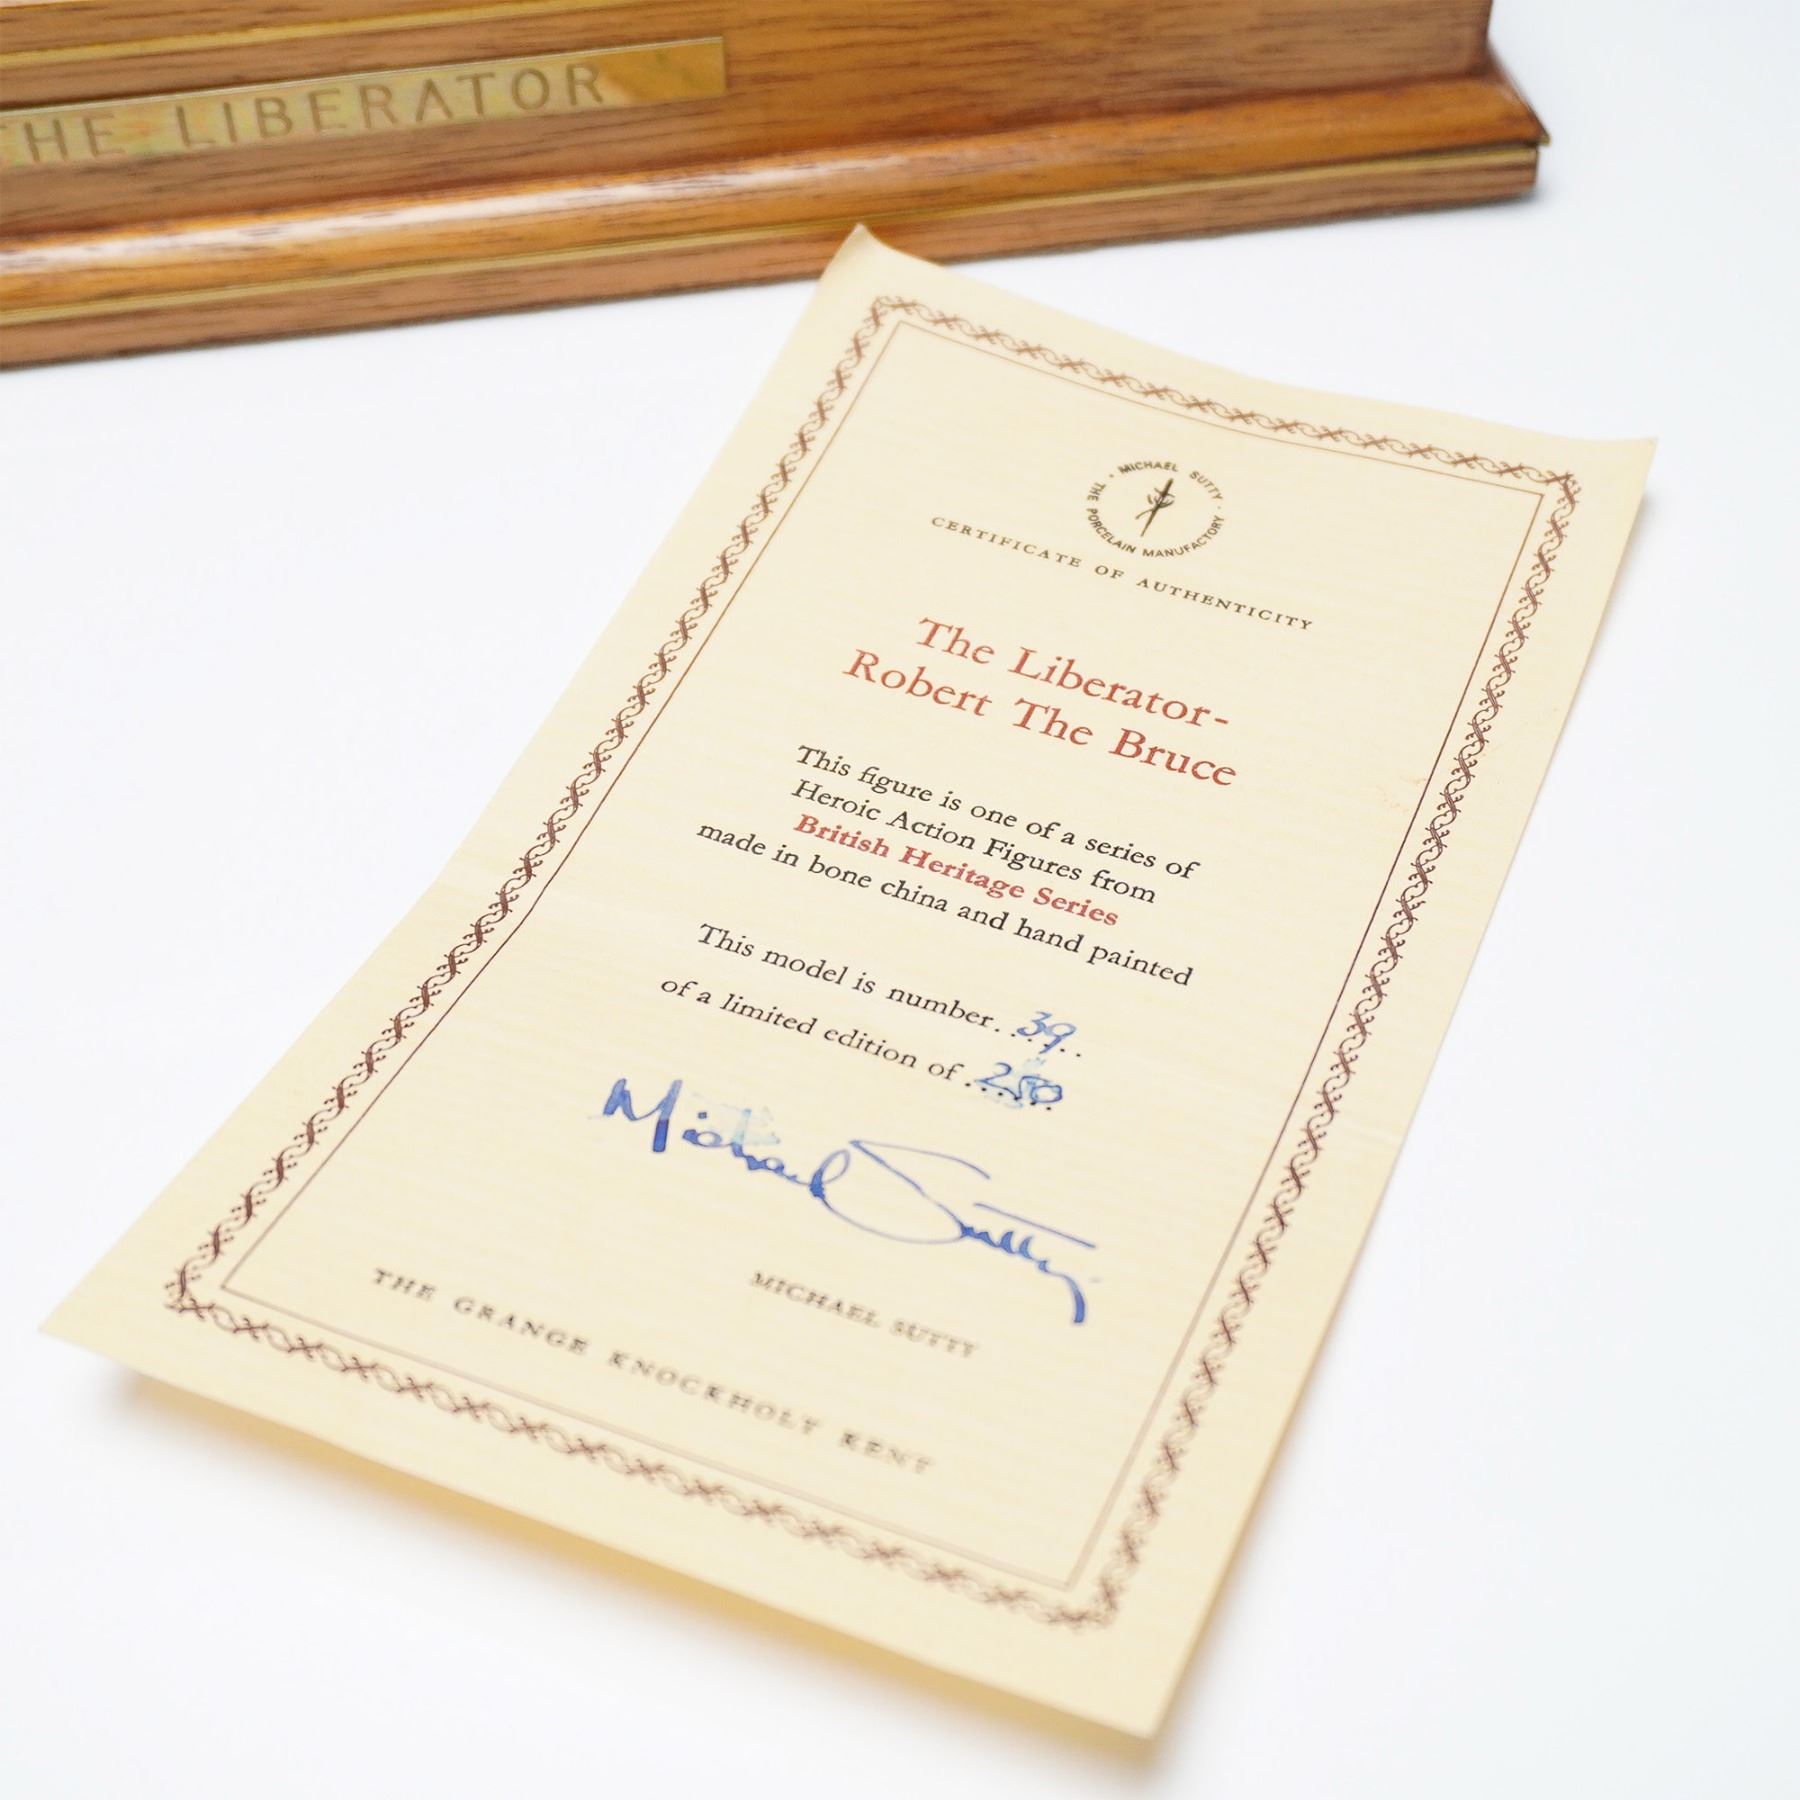 THE LIBERATOR
· MICHAEL SUTTY · THE PORCELAIN MANUFACTORY
CERTIFICATE OF AUTHENTICITY
The Liberator-
Robert The Bruce
This figure is one of a series of
Heroic Action Figures from
British Heritage Series
made in bone china and hand painted
This model is number..39....
of a limited edition of .250..
Michael Sutty
MICHAEL SUTTY
THE GRANGE KNOCKHOLT KENT